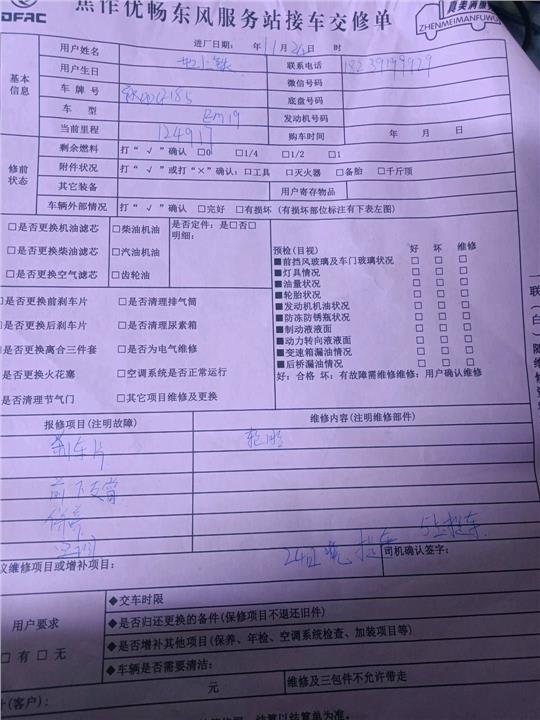 焦作优畅东风服务站接车交修单
DFAC
真美满服务
ZHENMEIMANFUWU
进厂日期: 年 11月 日 时
基本信息
用户姓名
联系电话
用户生日
微信号码
车牌号
底盘号码
车型
发动机号码
当前里程 124917
购车时间 年 月 日
修前状态
剩余燃料 打“√”确认 □0 □1/4 □1/2 □1
附件状况 打“√”或打“×”确认:□工具 □灭火器 □备胎 □千斤顶
其它装备 用户寄存物品
车辆外部情况 打“√”确认 □完好 □有损坏 (有损坏部位标注有下表左图)
□是否更换机油滤芯 □柴油机油 是否定件:是□否□
明细:
□是否更换柴油滤芯 □汽油机油
□是否更换空气滤芯 □齿轮油
预检(目视) 好 坏 维修
■前挡风玻璃及车门玻璃状况 □ □ □
■灯具情况 □ □ □
■油量状况 □ □ □
■轮胎状况 □ □ □
■发动机机油状况 □ □ □
■防冻防锈瓶状况 □ □ □
■制动液液面 □ □ □
■动力转向液液面 □ □ □
■变速箱漏油情况 □ □ □
■后桥漏油情况 □ □ □
好:合格 坏:有故障需维修维修:用户确认维修
是否更换前刹车片 □是否清理排气筒
是否更换后刹车片 □是否清理尿素箱
是否更换离合三件套 □是否为电气维修
是否更换火花塞 □空调系统是否正常运行
是否清理节气门 □其它项目维修及更换
报修项目(注明故障) 维修内容(注明维修部件)
刹车片
前下支臂
议维修项目或增补项目:
司机确认签字:
用户要求
□有 □无
◆交车时限
◆是否归还更换的备件(保修项目不退还旧件)
◆是否增补其他项目(保养、年检、空调系统检查、加装项目等)
◆车辆是否需要清洁:
计(客户): 元 维修及三包件不允许带走
结算以结算单为准.